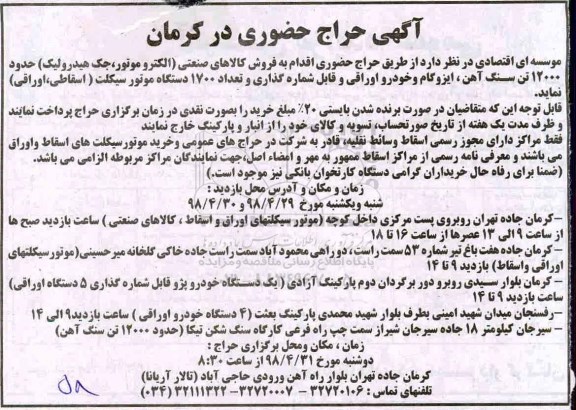 آگهی حراج حضوری در کرمان
موسسه ای اقتصادی در نظر دارد از طریق حراج حضوری اقدام به فروش کالاهای صنعتی (الکترو موتور،جک هیدرولیک) حدود
۱۲۰۰۰ تن سنگ آهن ، ایزوگام وخودرو اوراقی و قابل شماره گذاری و تعداد ۱۷۰۰ دستگاه موتور سیکلت ( اسقاطی،اوراقی)
نماید.
قابل توجه این که متقاضیان در صورت برنده شدن بایستی ۲۰٪ مبلغ خرید را بصورت نقدی در زمان برگزاری حراج پرداخت نمایند
و ظرف مدت یک هفته از تاریخ صورتحساب، تسویه و کالای خود را از انبار و پارکینگ خارج نمایند
فقط مراکز دارای مجوز رسمی اسقاط وسائط نقلیه، قادر به شرکت در حراج های عمومی وخرید موتورسیکلت های اسقاط واوراق
می باشند و معرفی نامه رسمی از مراکز اسقاط ممهور به مهر و امضاء اصل،جهت نمایندگان مراکز مربوطه الزامی می باشد.
(ضمنا برای رفاه حال خریداران گرامی دستگاه کارتخوان بانکی نیز موجود است.)
زمان و مکان و آدرس محل بازدید :
شنبه ویکشنبه مورخ ۹۸/۴/۲۹ و ۹۸/۴/۳۰
-کرمان جاده تهران روبروی پست مرکزی داخل کوچه (موتور سیکلتهای اوراق و اسقاط ، کالاهای صنعتی ) ساعت بازدید صبح ها
از ساعت ۹ الی ۱۳ عصرها از ساعت ۱۶ تا ۱۸
-کرمان جاده هفت باغ تیر شماره ۵۳ سمت راست، دوراهی محمودآباد سمت راست جاده خاکی گلخانه میرحسینی(موتور سیکلتهای
اوراقی واسقاط) بازدید ۹ تا ۱۴
- کرمان بلوار سیدی روبرو دور برگردان دوم پارکینگ آزادی ( یک دستگاه خودرو پژو قابل شماره گذاری ۵ دستگاه اوراقی)
ساعت بازدید ۹ تا ۱۴
-رفسنجان میدان شهید امینی بطرف بلوار شهید محمدی پارکینگ بعثت (۴ دستگاه خودرو اوراقی ) ساعت بازدید۹ الی ۱۴
- سیرجان کیلومتر ۱۸ جاده سیرجان شیراز سمت چپ راه فرعی کارگاه سنگ شکن تیکا (حدود ۱۲۰۰۰ تن سنگ آهن)
زمان ، مکان ومحل برگزاری حراج :
دوشنبه مورخ ۹۸/۴/۳۱ از ساعت ۸:۳۰
کرمان جاده تهران بلوار راه آهن ورودی حاجی آباد (تالار آریانا)
تلفنهای تماس : ۳۲۷۲۰۱۰۶ -۳۲۷۲۰۰۰۷- ۳۲۱۱۱۳۲۲ (۰۳۴)
۵۸